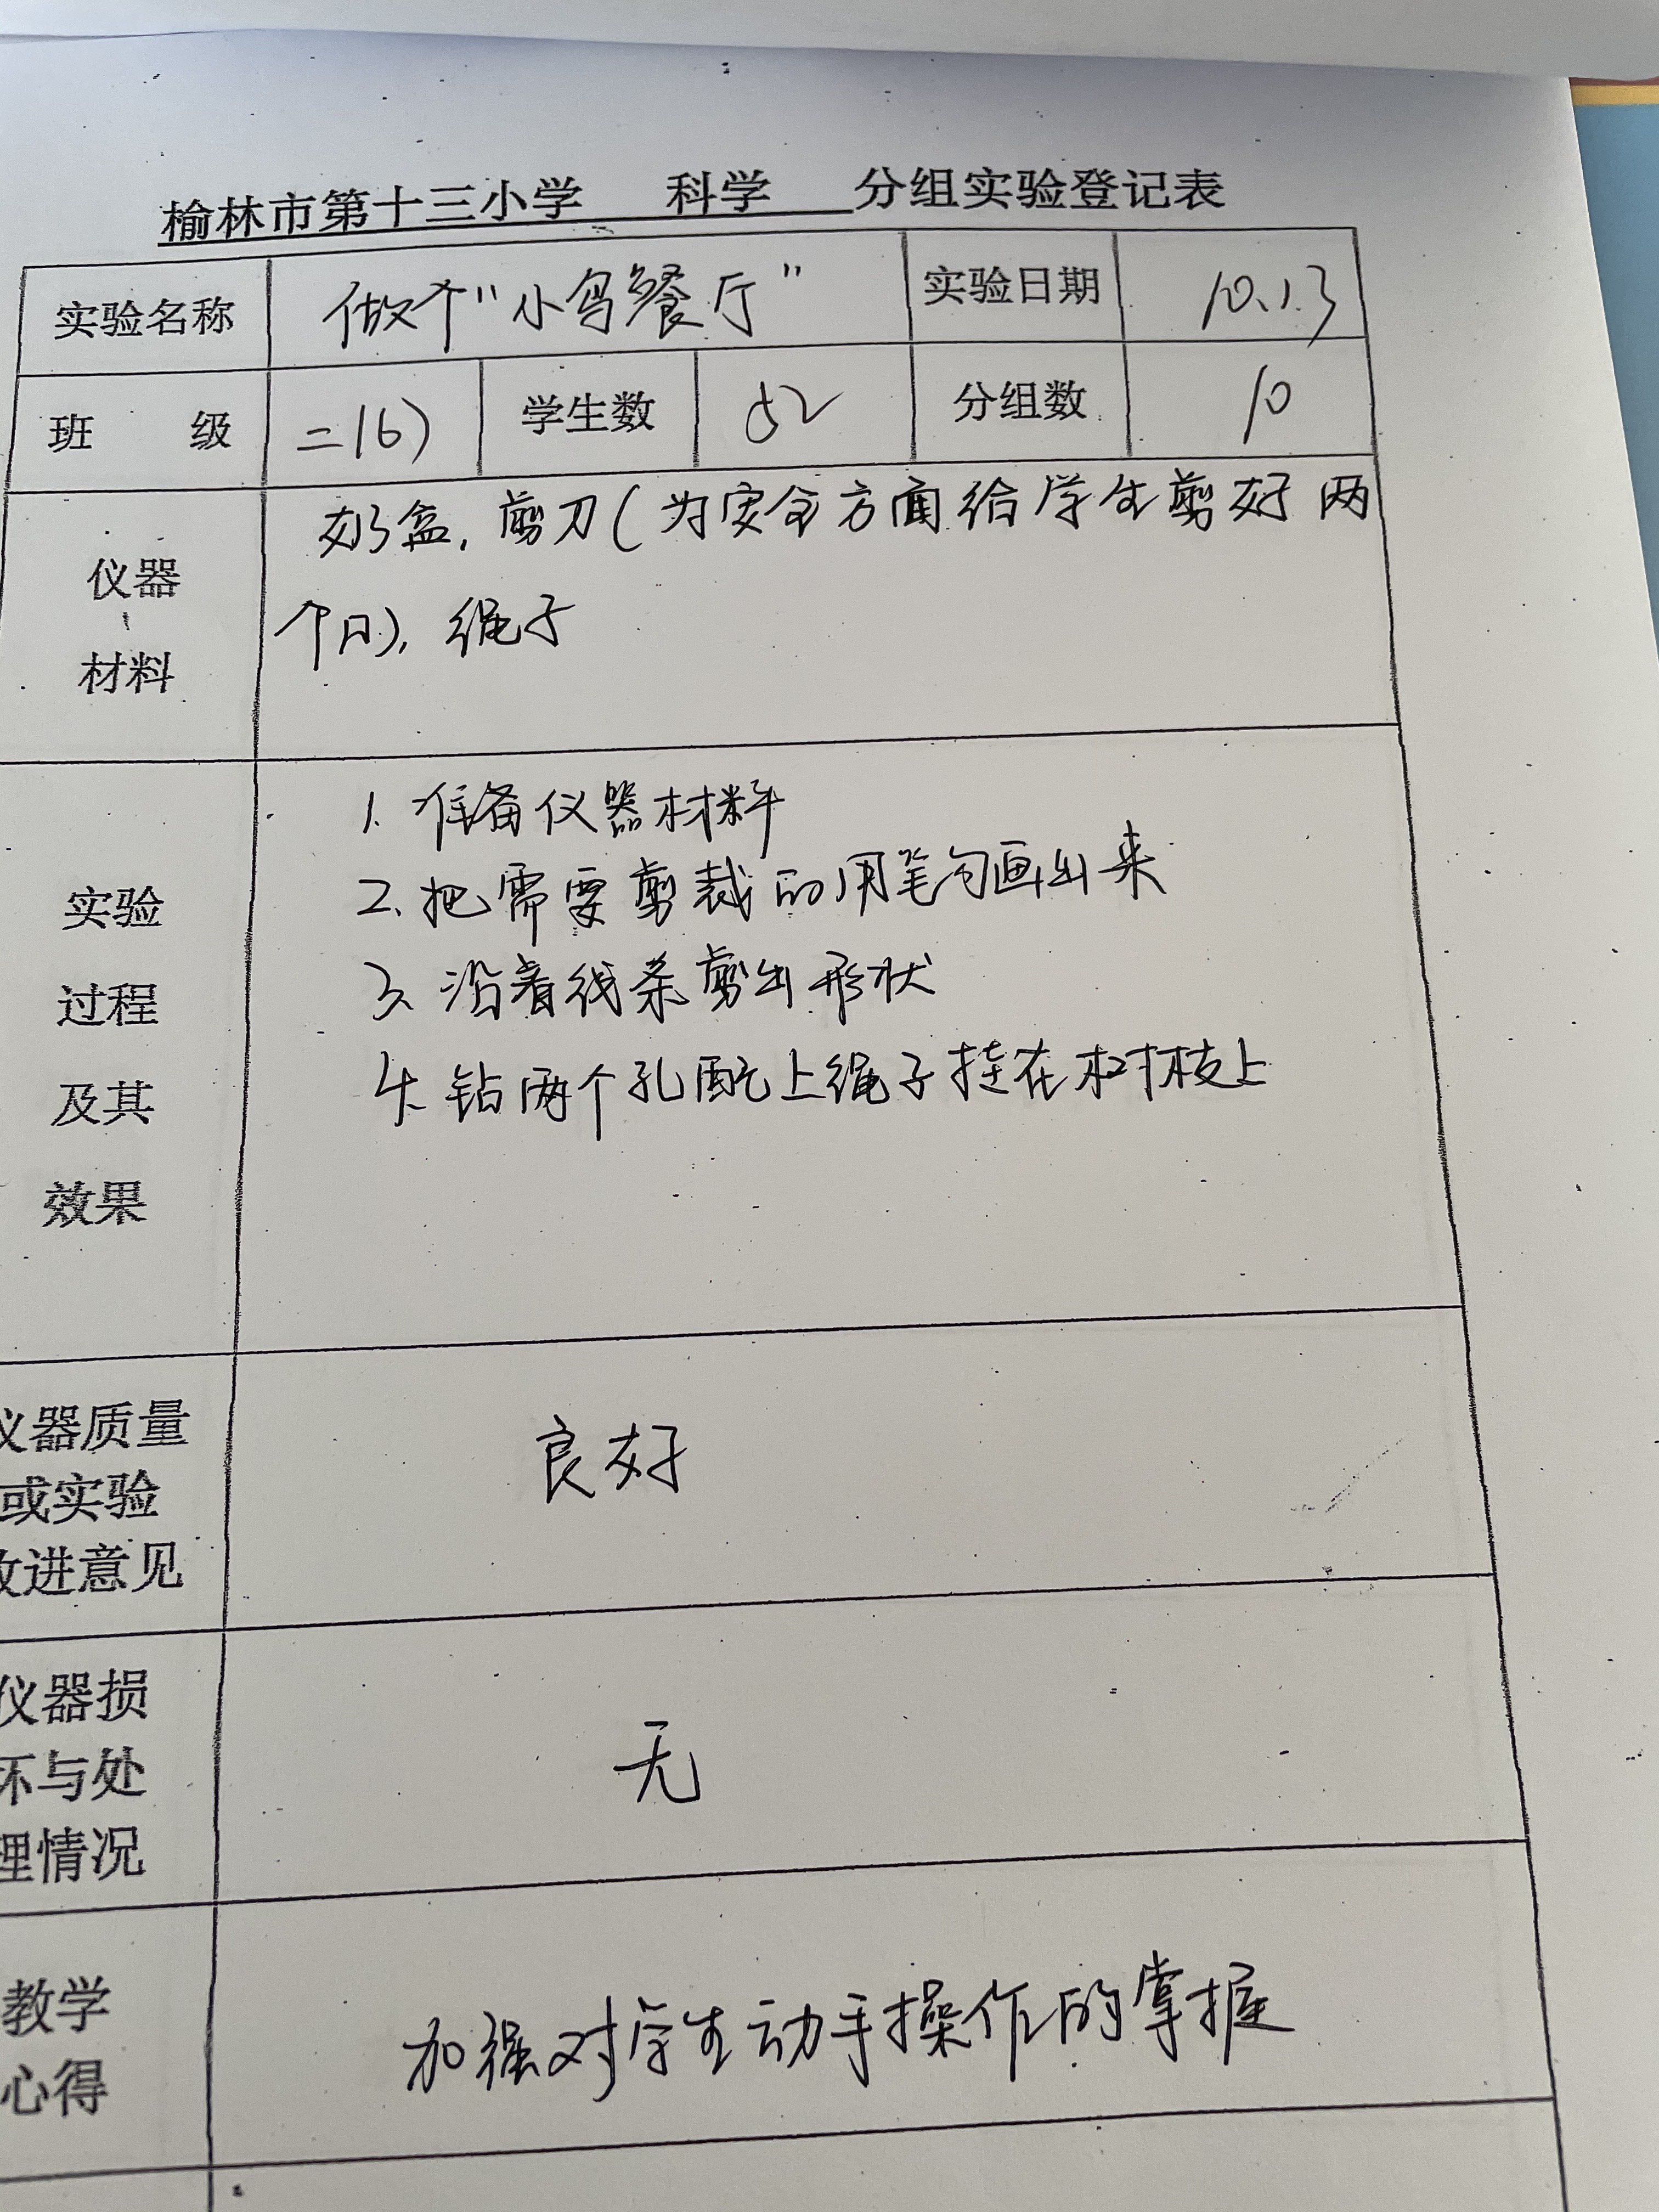 榆林市第十三小学 科学 分组实验登记表
实验名称 做个“小鸟餐厅” 实验日期 10.13
班 级 二(6) 学生数 52 分组数 10
仪器
材料
奶盒，剪刀(为安全方面给学生剪好两
个口)，绳子
实验
过程
及其
效果
1、准备仪器材料
2、把需要剪裁的用笔勾画出来
3、沿着线条剪出形状
4、钻两个孔配上绳子挂在树枝上
仪器质量
或实验
改进意见
良好
仪器损
坏与处
理情况
无
教学
心得
加强对学生动手操作的掌握